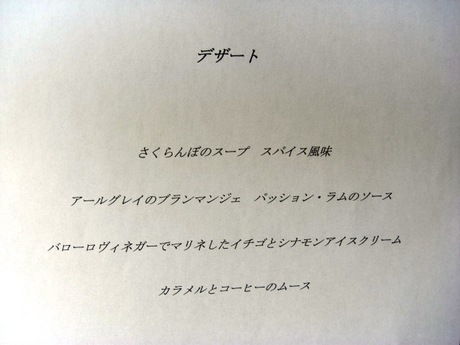 デザート
さくらんぼのスープ　スパイス風味
アールグレイのブランマンジェ　パッション・ラムのソース
バローロヴィネガーでマリネしたイチゴとシナモンアイスクリーム
カラメルとコーヒーのムース